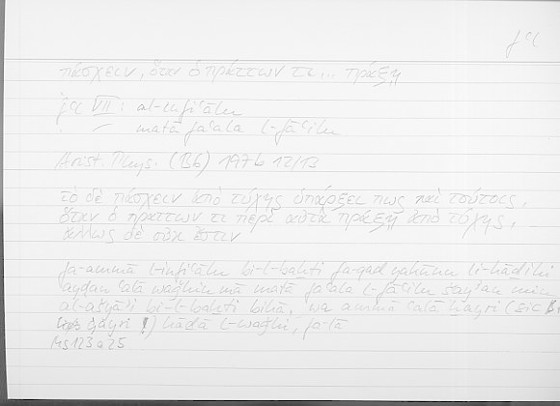 fʿl
πάσχειν, ὅταν ὁ πράττων τι ... πράξῃ
fʿl VII: al-infiʿālu
matā faʿala l-fāʿilu
Arist. Phys. (B6) 197b 12/13
τὸ δὲ πάσχειν ἀπὸ τύχης ὑπάρξει πως καὶ τούτοις,
ὅταν ὁ πράττων τι περὶ αὐτὰ πράξῃ ἀπὸ τύχης,
ἄλλως δὲ οὐκ ἔστιν
fa-ammā l-infiʿālu bi-l-baḫti fa-qad yakūnu li-hāḏihi
ayḍan ʿalā waǧhin mā matā faʿala l-fāʿilu šayʾan min
al-ašyāʾi bi-l-baḫti bihā, wa ammā ʿalā ḫayri (sic
ġayri !) hāḏā l-waǧhi, fa-lā
Ms 123 a 25